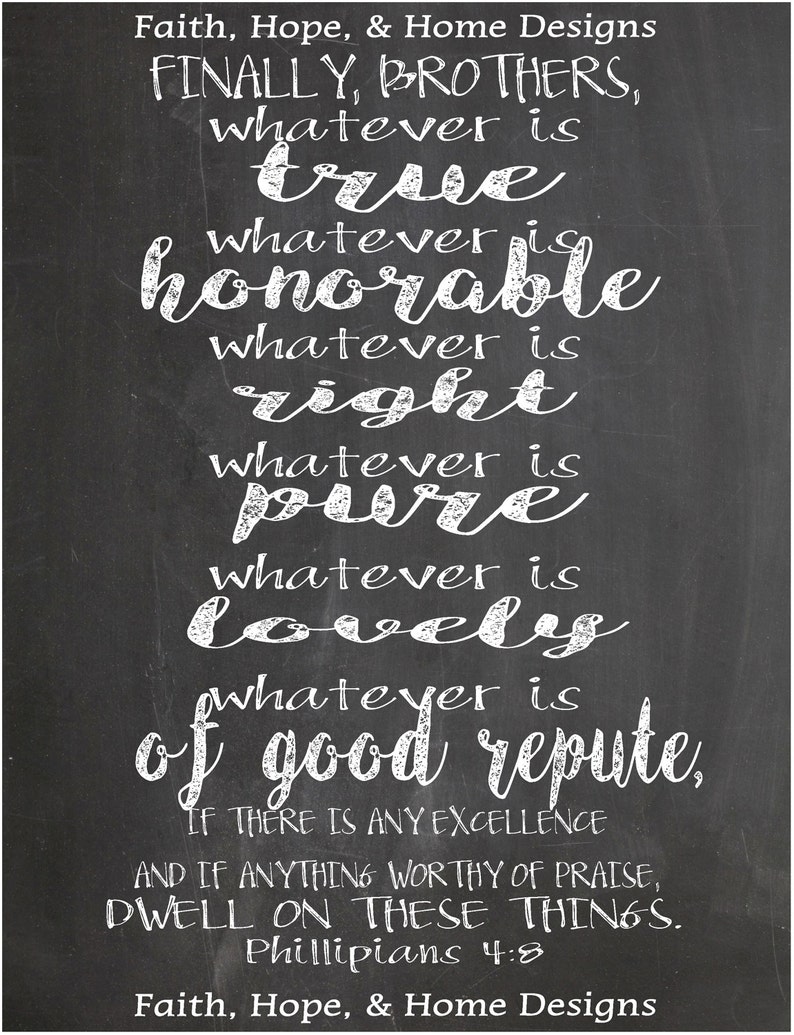 Faith, Hope, & Home Designs
FINALLY, BROTHERS,
whatever is
true
whatever is
honorable
whatever is
right
whatever is
pure
whatever is
lovely
whatever is
of good repute,
IF THERE IS ANY EXCELLENCE
AND IF ANYTHING WORTHY OF PRAISE,
DWELL ON THESE THINGS.
Phillipians 4:8
Faith, Hope, & Home Designs